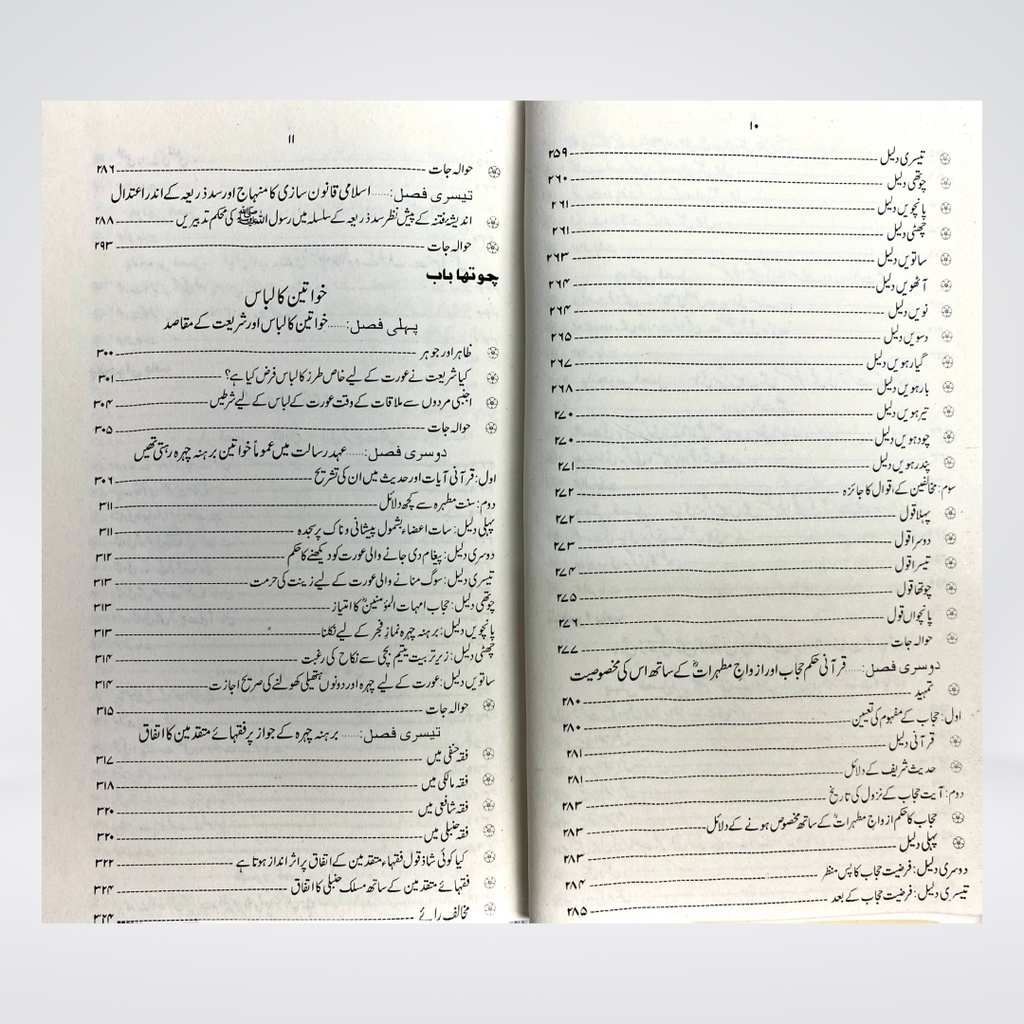 ۱۰
تیسری دلیل ------ ۲۵۹
چوتھی دلیل ------ ۲۶۰
پانچویں دلیل ------ ۲۶۱
چھٹی دلیل ------ ۲۶۱
ساتویں دلیل ------ ۲۶۳
آٹھویں دلیل ------ ۲۶۴
نویں دلیل ------ ۲۶۴
دسویں دلیل ------ ۲۶۵
گیارہویں دلیل ------ ۲۶۷
بارہویں دلیل ------ ۲۶۸
تیرہویں دلیل ------ ۲۷۰
چودہویں دلیل ------ ۲۷۰
پندرہویں دلیل ------ ۲۷۱
سوم: مخالفین کے اقوال کا جائزہ ------ ۲۷۲
پہلا قول ------ ۲۷۲
دوسرا قول ------ ۲۷۳
تیسرا قول ------ ۲۷۴
چوتھا قول ------ ۲۷۵
پانچواں قول ------ ۲۷۶
حوالہ جات ------ ۲۷۷
دوسری فصل:...... قرآنی حکم حجاب اور ازواج مطہراتؓ کے ساتھ اس کی مخصوصیت
تمہید ------ ۲۸۰
اول: حجاب کے مفہوم کی تعیین ------ ۲۸۰
قرآنی دلیل ------ ۲۸۱
حدیث شریف کے دلائل ------ ۲۸۱
دوم: آیت حجاب کے نزول کی تاریخ ------ ۲۸۳
حجاب کا حکم ازواج مطہراتؓ کے ساتھ مخصوص ہونے کے دلائل ------ ۲۸۳
پہلی دلیل ------ ۲۸۳
دوسری دلیل: فرضیت حجاب کا پس منظر ------ ۲۸۴
تیسری دلیل: فرضیت حجاب کے بعد ------ ۲۸۵
۱۱
حوالہ جات ------ ۲۸۶
تیسری فصل:...... اسلامی قانون سازی کا منہاج اور سد ذریعہ کے اندر اعتدال
اندیشۂ فتنہ کے پیش نظر سد ذریعہ کے سلسلہ میں رسول اللہ ﷺ کی محکم تدبیریں ------ ۲۸۸
حوالہ جات ------ ۲۹۳
چوتھا باب
خواتین کا لباس
پہلی فصل:...... خواتین کا لباس اور شریعت کے مقاصد
ظاہر اور جوہر ------ ۳۰۰
کیا شریعت نے عورت کے لیے خاص طرز کا لباس فرض کیا ہے؟ ------ ۳۰۱
اجنبی مردوں سے ملاقات کے وقت عورت کے لباس کے لیے شرطیں ------ ۳۰۴
حوالہ جات ------ ۳۰۵
دوسری فصل:...... عہد رسالت میں عموماً خواتین برہنہ چہرہ رہتی تھیں
اول: قرآنی آیات اور حدیث میں ان کی تشریح ------ ۳۰۶
دوم: سنت مطہرہ سے کچھ دلائل ------ ۳۱۱
پہلی دلیل: سات اعضاء بشمول پیشانی و ناک پر سجدہ ------ ۳۱۱
دوسری دلیل: پیغام دی جانے والی عورت کو دیکھنے کا حکم ------ ۳۱۲
تیسری دلیل: سوگ منانے والی عورت کے لیے زینت کی حرمت ------ ۳۱۳
چوتھی دلیل: حجاب امہات المؤمنینؓ کا امتیاز ------ ۳۱۳
پانچویں دلیل: برہنہ چہرہ نماز فجر کے لیے نکلنا ------ ۳۱۳
چھٹی دلیل: زیر تربیت یتیم بچی سے نکاح کی رغبت ------ ۳۱۴
ساتویں دلیل: عورت کے لیے چہرہ اور دونوں ہتھیلی کھولنے کی صریح اجازت ------ ۳۱۴
حوالہ جات ------ ۳۱۵
تیسری فصل:...... برہنہ چہرہ کے جواز پر فقہائے متقدمین کا اتفاق
فقہ حنفی میں ------ ۳۱۷
فقہ مالکی میں ------ ۳۱۸
فقہ شافعی میں ------ ۳۲۰
فقہ حنبلی میں ------ ۳۲۰
کیا کوئی شاذ قول فقہاء متقدمین کے اتفاق پر اثر انداز ہوتا ہے ------ ۳۲۲
فقہائے متقدمین کے ساتھ مسلک حنبلی کا اتفاق ------ ۳۲۴
مخالف رائے ------ ۳۲۴